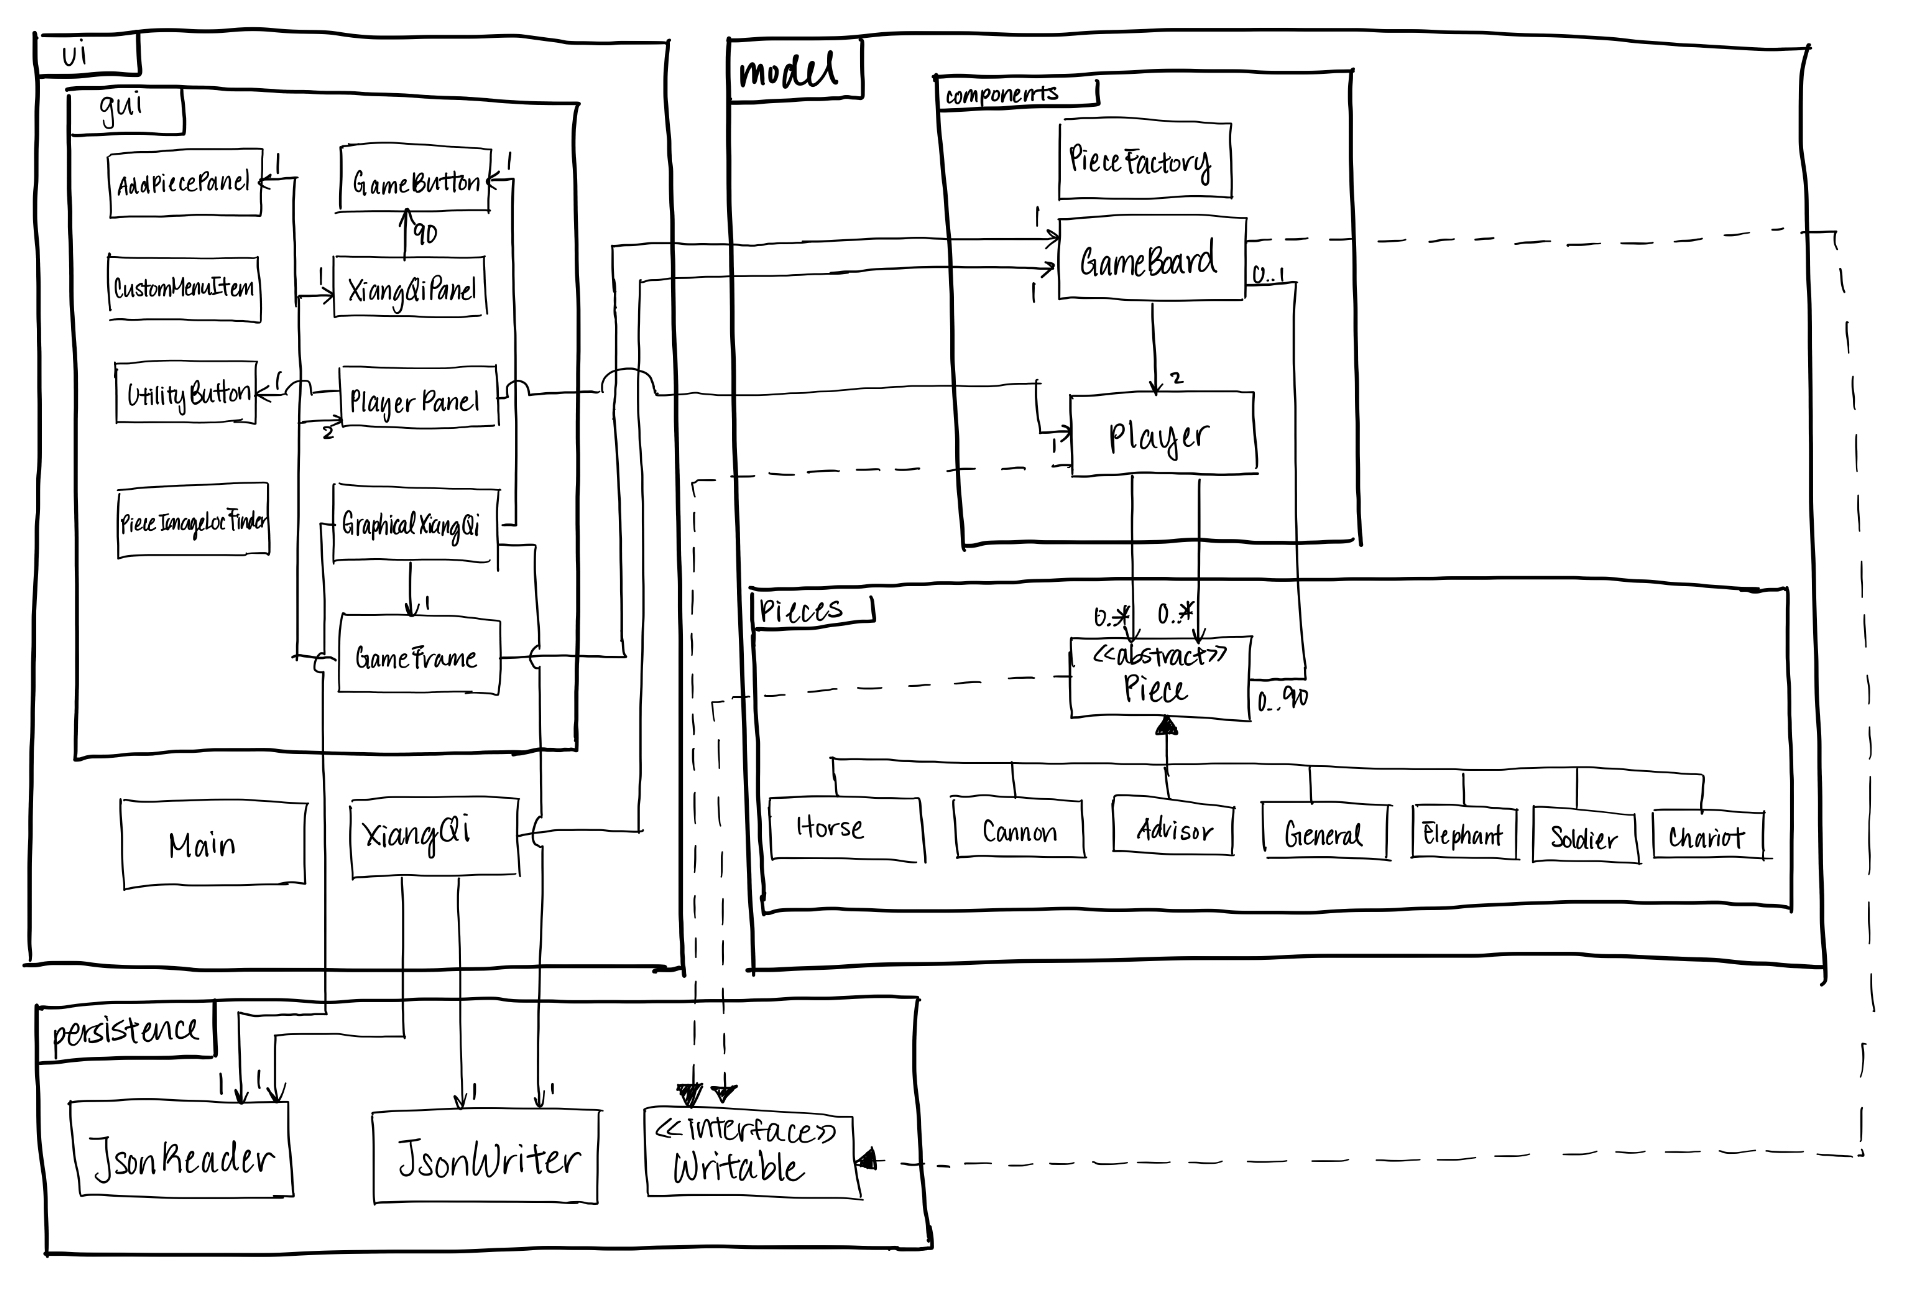 ui
gui
AddPiecePanel
1
GameButton
1
90
CustomMenuItem
1
XiangQiPanel
UtilityButton
1
2
PlayerPanel
PieceImageLocFinder
GraphicalXiangQi
1
GameFrame
Main
XiangQi
model
components
PieceFactory
1
GameBoard
0..1
1
2
Player
1
Pieces
0..*
0..*
<<abstract>>
Piece
0..90
Horse
Cannon
Advisor
General
Elephant
Soldier
Chariot
persistence
1
1
JsonReader
1
1
JsonWriter
<<interface>>
Writable